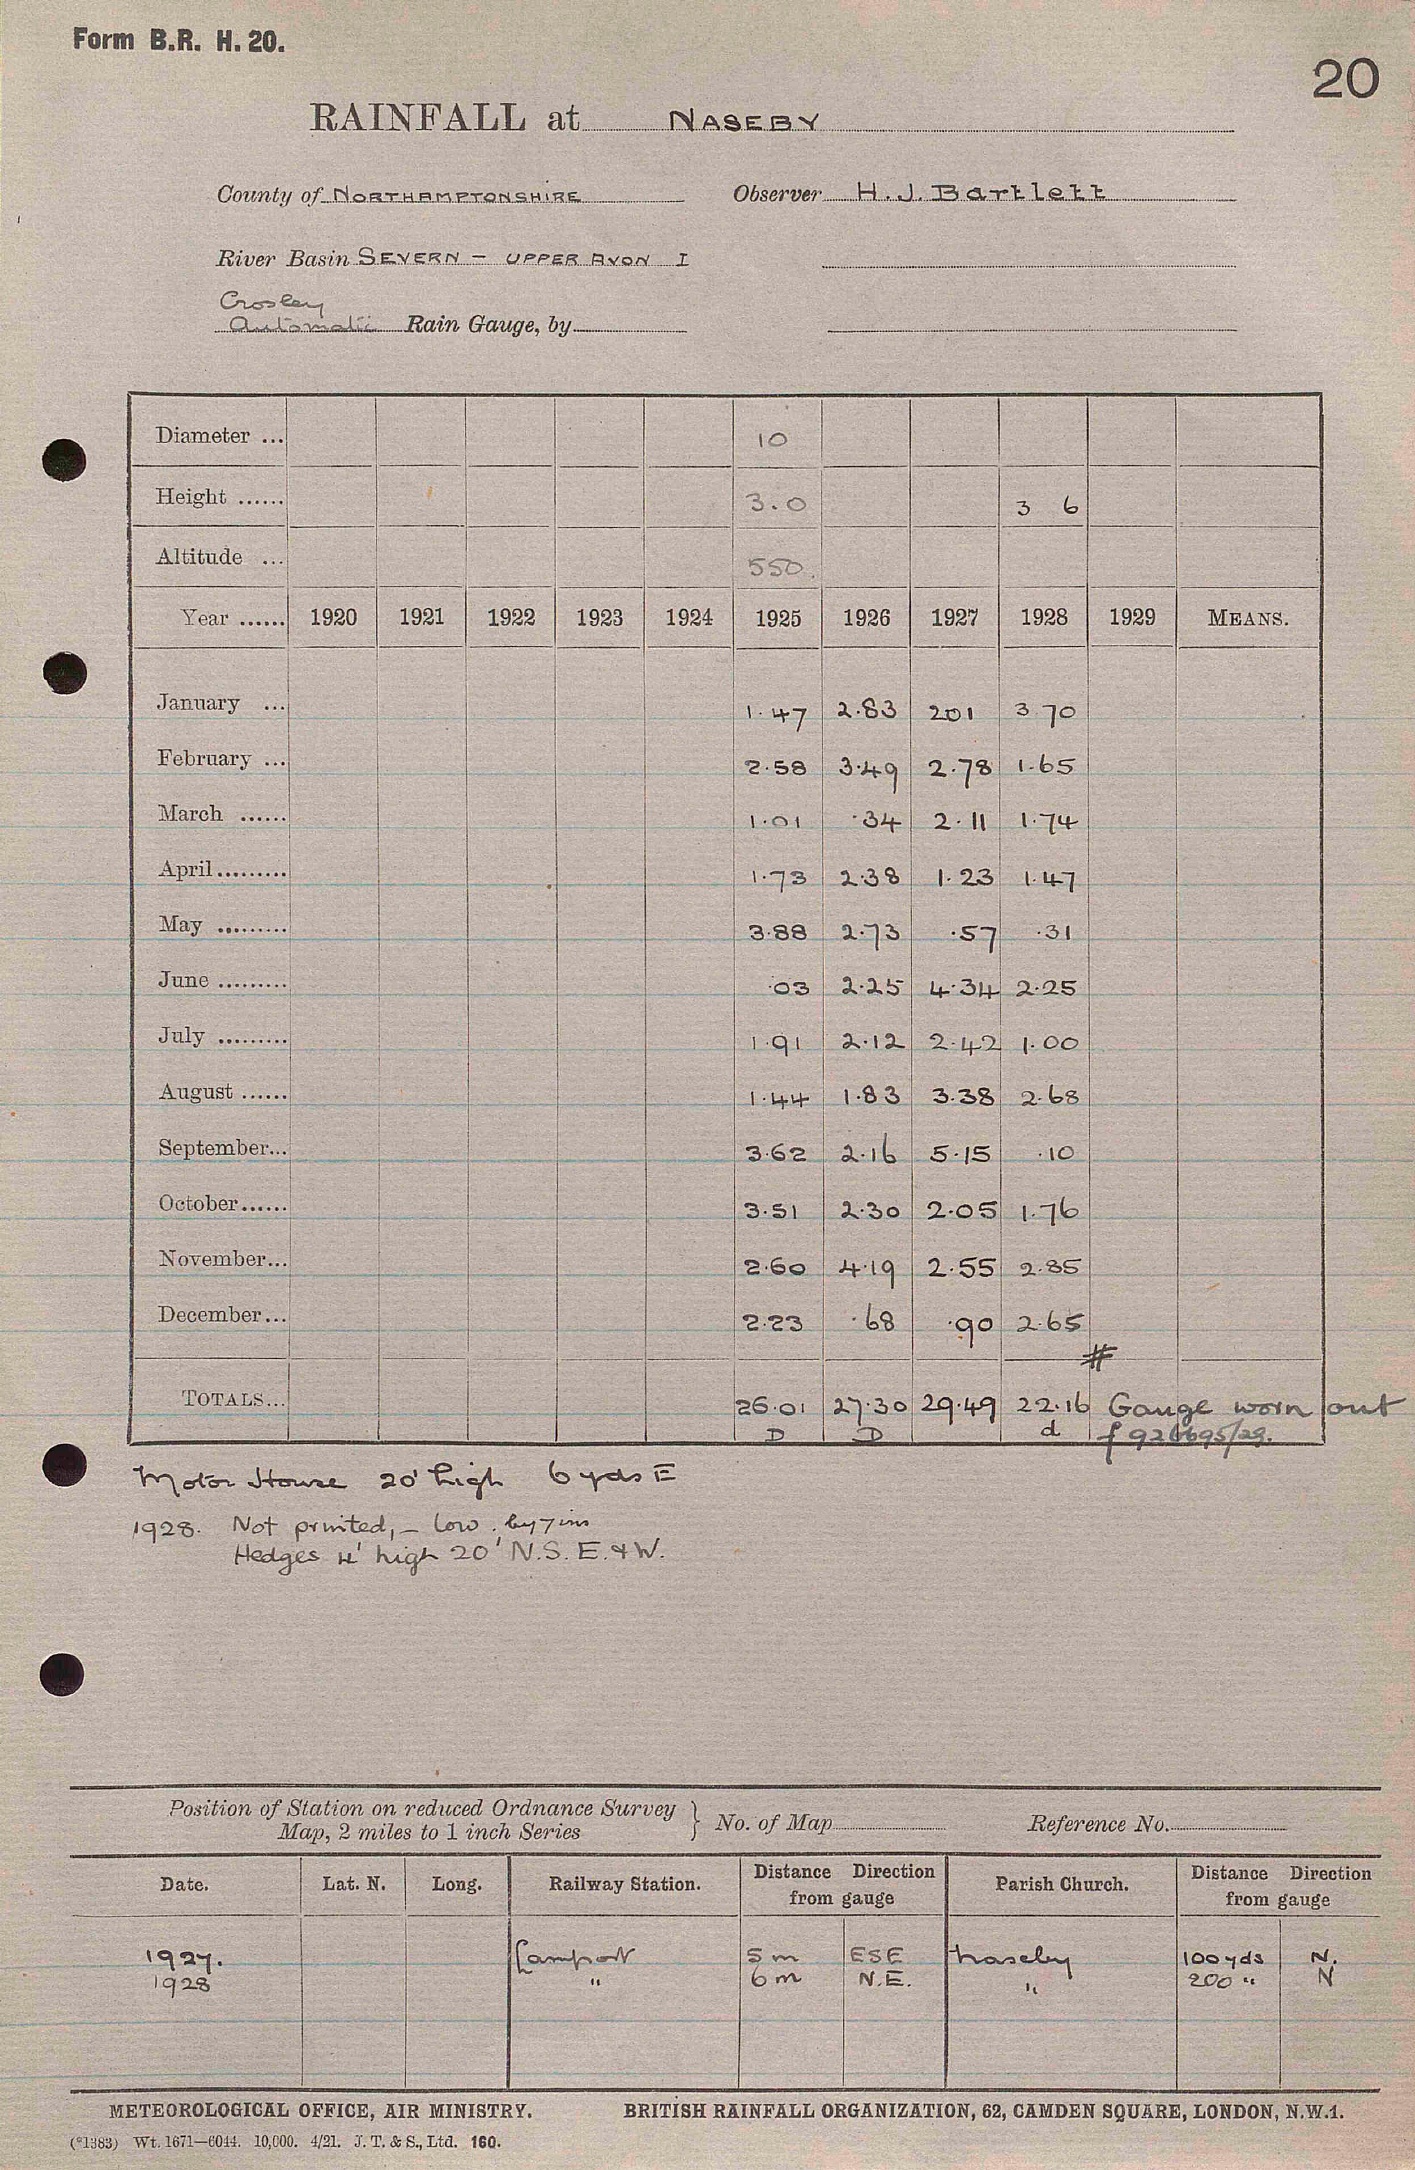 Form B.R. H. 20.
20
RAINFALL at NASEBY
County of NORTHAMPTONSHIRE Observer H. J. Bartlett
River Basin SEVERN – UPPER AVON I
Crosley
Automatic Rain Gauge, by
Diameter ... 10
Height ...... 3.0 3 6
Altitude ... 550.
Year ...... 1920 1921 1922 1923 1924 1925 1926 1927 1928 1929 MEANS.
January ... 1.47 2.83 201 3 70
February ... 2.58 3.49 2.78 1.65
March ...... 1.01 .34 2.11 1.74
April ......... 1.73 2.38 1.23 1.47
May ......... 3.88 2.73 .57 .31
June ......... .03 2.25 4.34 2.25
July ......... 1.91 2.12 2.42 1.00
August ...... 1.44 1.83 3.38 2.68
September... 3.62 2.16 5.15 .10
October...... 3.51 2.30 2.05 1.76
November... 2.60 4.19 2.55 2.85
December... 2.23 .68 .90 2.65
#
TOTALS... 26.01 27.30 29.49 22.16 Gauge worn out
D D d f 926695/29.
Motor House 20' high 6 yds E
1928. Not printed, – low by 7 ins
Hedges 4' high 20' N.S. E. & W.
Position of Station on reduced Ordnance Survey
Map, 2 miles to 1 inch Series } No. of Map Reference No.
Date. Lat. N. Long. Railway Station. Distance Direction from gauge Parish Church. Distance Direction from gauge
1927. Lamport 5 m ESE Naseby 100 yds N.
1928 " 6 m N.E. " 200 " N
METEOROLOGICAL OFFICE, AIR MINISTRY. BRITISH RAINFALL ORGANIZATION, 62, CAMDEN SQUARE, LONDON, N.W.1.
(*1383) Wt. 1671—6044. 10,000. 4/21. J. T. & S., Ltd. 160.